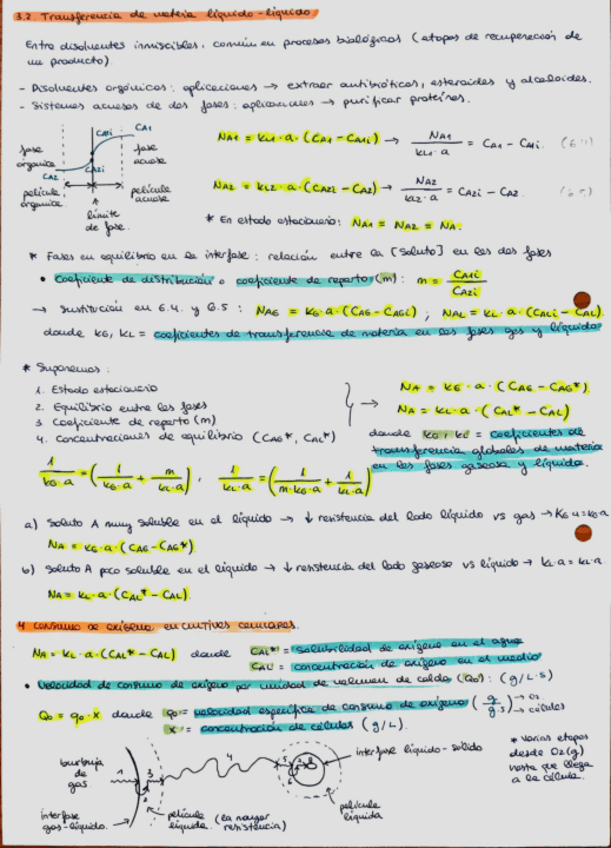 3.2. Transferencia de materia líquido-líquido
Entre disolventes inmiscibles, común en procesos biológicos (etapas de recuperación de
un producto).
- Disolventes orgánicos: aplicaciones → extraer antibióticos, esteroides y alcaloides.
- Sistemas acuosos de dos fases: aplicaciones → purificar proteínas.
fase orgánica
CA2
CA1i
CA2i
CA1
fase acuosa
película orgánica
película acuosa
límite de fase.
NA1 = kL1·a·(CA1 - CA1i) → NA1 / kL1·a = CA1 - CA1i.
NA2 = kL2·a·(CA2i - CA2) → NA2 / kL2·a = CA2i - CA2
* En estado estacionario: NA1 = NA2 = NA.
* Fases en equilibrio en la interfase: relación entre la [soluto] en las dos fases
• Coeficiente de distribución o coeficiente de reparto (m): m = CA1i / CA2i
→ Sustitución en 6.4. y 6.5: NAG = kG·a·(CAG - CAGi) ; NAL = kL·a·(CALi - CAL).
donde kG, kL = coeficientes de transferencia de materia en las fases gas y líquida
* Suponemos:
1. Estado estacionario
2. Equilibrio entre las fases
3 Coeficiente de reparto (m)
4. Concentraciones de equilibrio (CAG*, CAL*)
→ NA = KG·a·(CAG - CAG*)
NA = KL·a·(CAL* - CAL)
donde KG, KL = coeficientes de
transferencia globales de materia
en las fases gaseosa y líquida.
1/KG·a = (1/kG·a + m/kL·a), 1/KL·a = (1/m·kG·a + 1/kL·a)
a) Soluto A muy soluble en el líquido → ↓ resistencia del lado líquido vs gas →
NA = KG·a·(CAG - CAG*)
b) Soluto A poco soluble en el líquido → ↓ resistencia del lado gaseoso vs líquido → KL·a = kL·a.
NA = KL·a·(CAL* - CAL).
4 Consumo de oxígeno en cultivos celulares.
NA = KL·a·(CAL* - CAL) donde CAL* = solubilidad de oxígeno en el agua
CAL = concentración de oxígeno en el medio
• Velocidad de consumo de oxígeno por unidad de volumen de caldo (Qo): (g/L·s)
Qo = qo·x donde qo = velocidad específica de consumo de oxígeno (g/g·s) → O2 → células
x = concentración de células (g/L).
burbuja de gas
1
2
3
4
5
6
7
8
interfase líquido-sólido
* Varias etapas
desde O2(g)
hasta que llega
a la célula.
interfase
gas-líquido.
película
líquida. (la mayor resistencia)
película
líquida